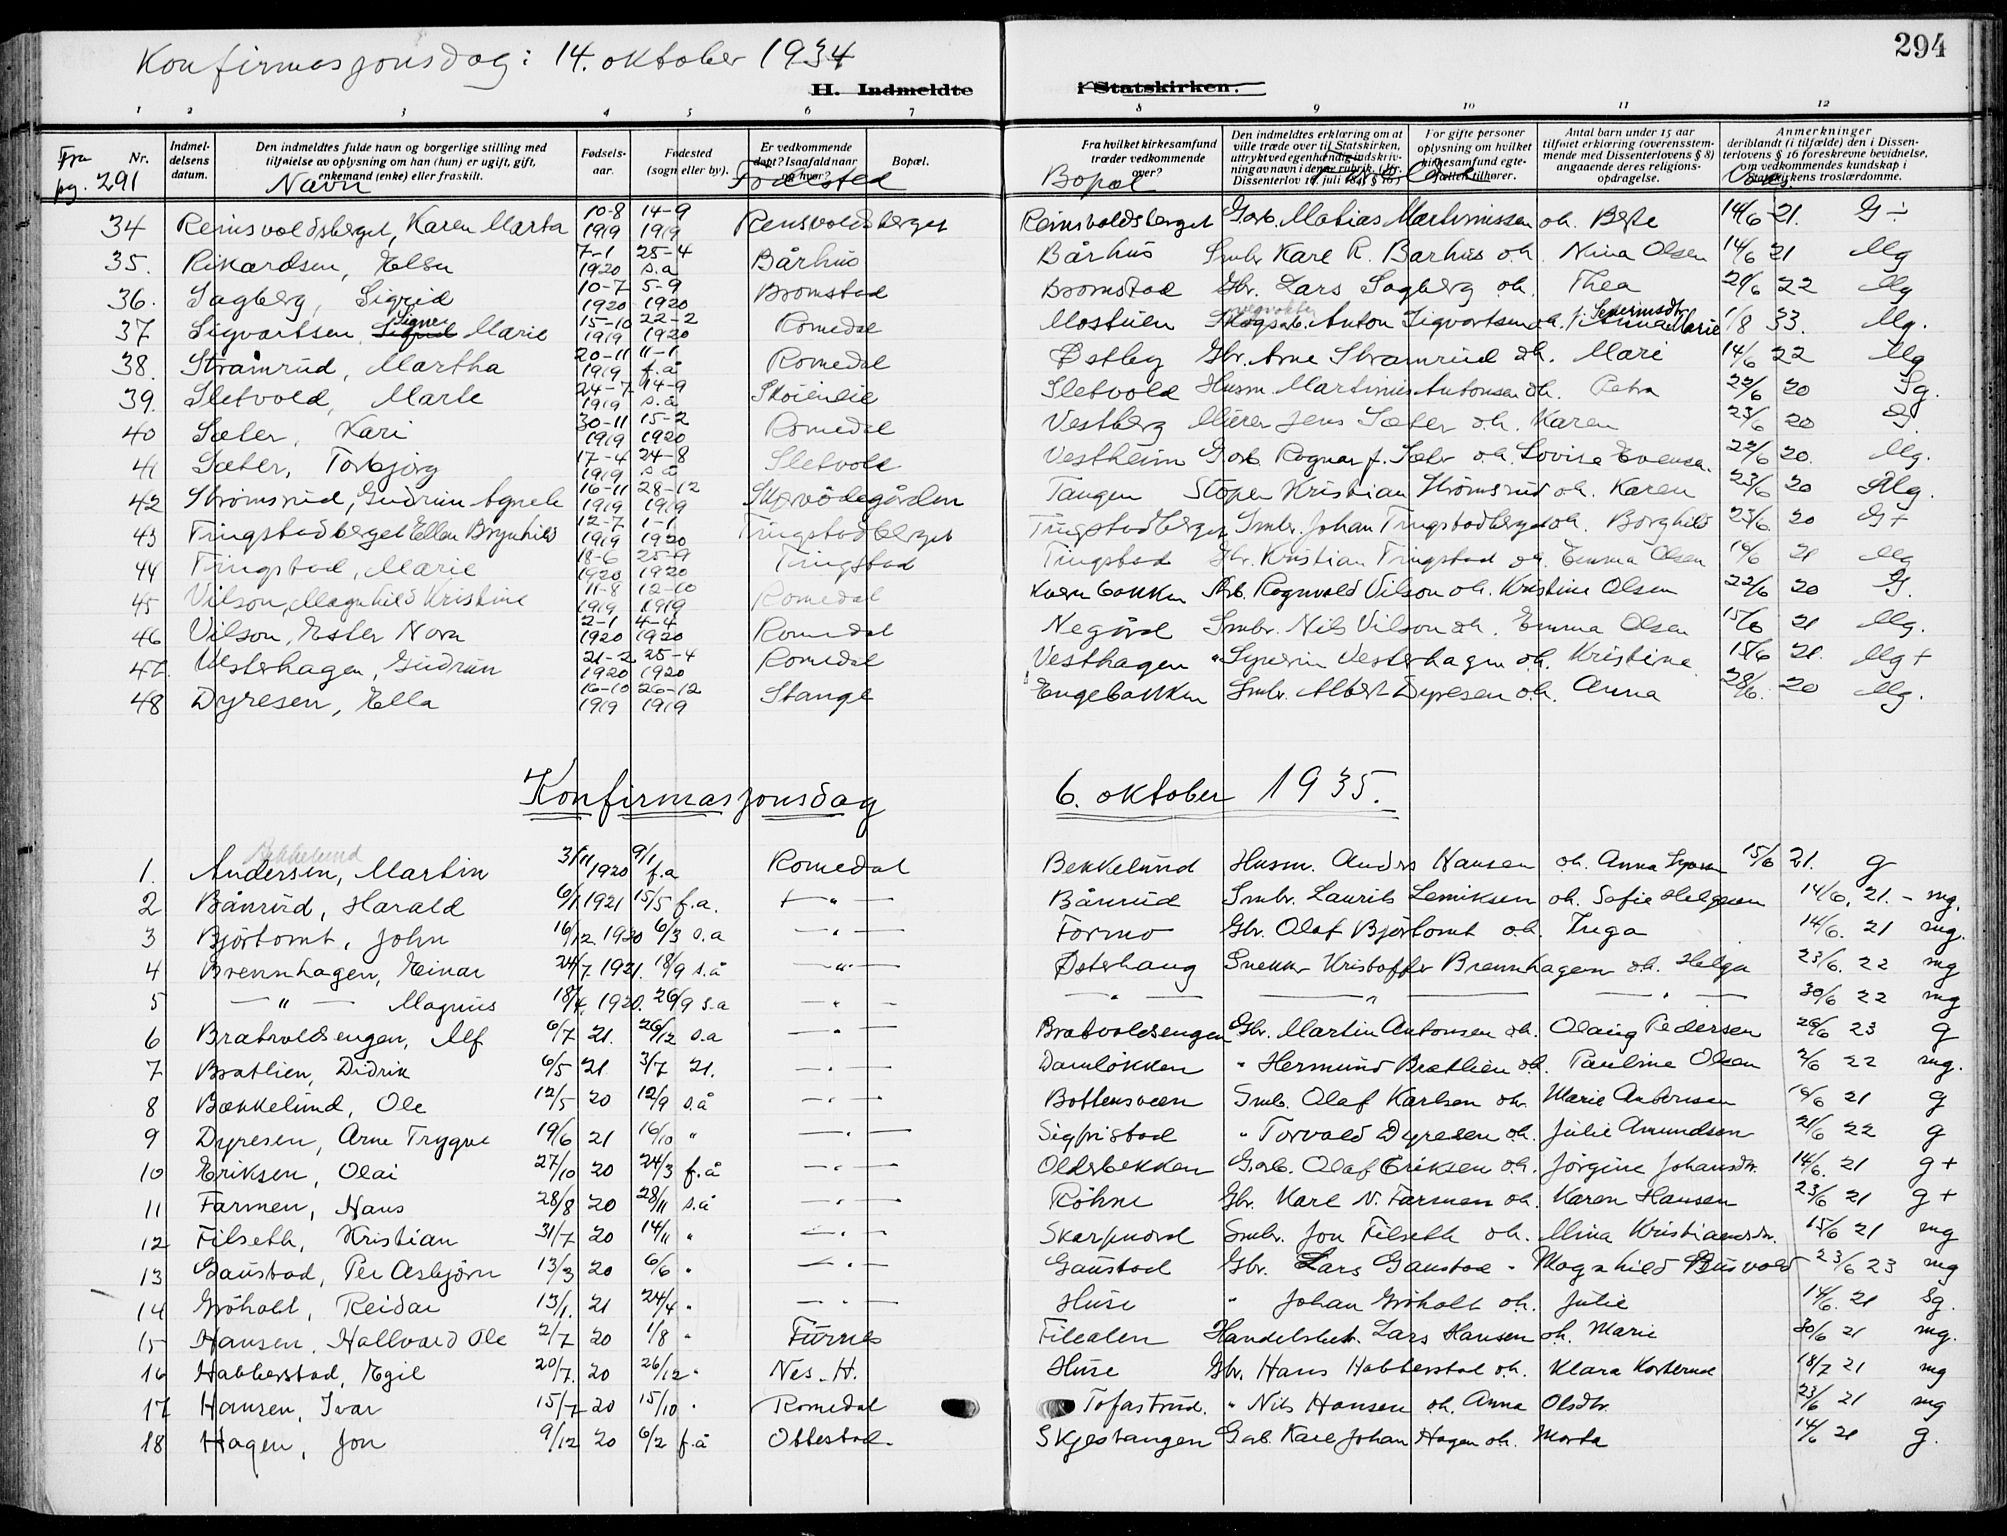 Konfirmasjonsdag: 14. oktober 1934
294
H. Indmeldte i Statskirken.
1 2 3 4 5 6 7 8 9 10 11 12
Fra pg. 291
Nr.
Indmeldelsens datum.
Den indmeldtes fulde navn og borgerlige stilling med tilføielse av oplysning om han (hun) er ugift, gift, enkemand (enke) eller fraskilt.
Navn
Fødselsaar.
Fødested (sogn eller by).
Er vedkommende døpt? Isaafald naar og hvor?
Fødested
Bopæl.
Fra hvilket kirkesamfund træder vedkommende over?
Bopæl
Den indmeldtes erklæring om at ville træde over til Statskirken, uttrykt ved egenhændig indskrivning av navn i denne rubrik. (Jfr. Dissenterlov 16 juli 1845 § 16)
For gifte personer oplysning om hvilket kirkesamfund egtefællen tilhører.
Antal barn under 15 aar tilføiet erklæring (overensstemmende med Dissenterlovens § 8) angaaende deres religionsopdragelse.
Anmerkninger deriblandt (i tilfælde) den i Dissenterlovens § 16 foreskrevne bevidnelse, om vedkommendes kundskap i Statskirkens troslærdomme.
34 Reinsvoldsberget, Karen Marta 10-8 1919 14-9 1919 Rensvoldsberget Reinsvoldsberget Garb. Matias Martinussen oh. Berte 14/6 21. G ÷
35. Rikardsen, Elsa 7-1 1920 25-4 s.a Bårhus Bårhus Smbr Karl R. Barhus o.h. Nina Olsen 14/6 21 Mg
36. Sagberg, Sigrid 10-7 1920 5-9 1920 Bromstad Bromstad Gbr. Lars Sagberg oh. Thea 21/6 22 Mg
37 Sigvartsen, Signe Marie 15-10 1919 22-2 1920 Romedal Mostuen Anton Sigvartsen oh. Anna Marie 1/8 33. Mg.
38. Strømrud, Martha 20-11 1919 11-1 f.å Romedal Østby Gbr. Arne Strømrud oh. Mari 14/6 22 Mg
39. Sletvold, Marte 24-7 1919 14-9 s.a Skøienlie Sletvold Husm. Martinus Antonsen oh. Petra 22/6 20 Sg.
40 Sæter, Kari 30-11 1919 15-2 1920 Romedal Vestberg Murer Jens Sæter o.h. Karen 23/6 20 G
41 Sæter, Torbjørg 17-4 1919 24-8 s.å Sletvold Vestheim Garb. Ragnar J. Sæter o.h. Lovise Evensen. 22/6 20. Mg.
42 Strømsrud, Gudrun Agnete 16-11 1919 28-12 1919 Skjervødegården Tangen Støper Kristian Strømsrud oh. Karen 23/6 20 Mg.
43 Tingstadberget Ellen Brynhild 12-7 1919 1-1 1920 Tingstadberget Tingstadberget Smbr. Johan Tingstadberget oh. Borghild 23/6 20 G+
44 Tingstad, Marie 18-6 1920 25-9 1920 Tingstad Tingstad Gbr. Kristian Tingstad oh. Emma Olsen 14/6 21 Mg
45 Vilson, Magnhild Kristine 11-8 1919 12-10 1919 Romedal Kvernbakken Arb. Ragnvald Vilson oh. Kristine Olsen 22/6 20 G.
46 Vilson, Ester Nora 2-1 1920 4-4 1920 Romedal Negård Smbr. Nils Vilson oh. Emma Olsen 15/6 21 Mg.
47. Vesterhagen, Gudrun 21-2 1920 25-4 1920 Romedal Vesthagen " Syverin Vesterhagen oh. Kristine 15/6 21. Mg +
48 Dyresen, Ella 16-10 1919 26-12 1919 Stange Engebakken Smbr. Albert Dyresen o.h. Anna 28/6. 20 Mg.
Konfirmasjonsdag 6. oktober 1935.
Bekkelund
1. Andersen, Martin 3/11 1920 9/1 f.a Romedal Bekkelund Husm. Anders Hansen oh. Anna 15/6 21. g
2 Bånrud, Harald 6/1 1921 15/5 f.a. — " — Bånrud Smbr. Laurits Lemiksen oh. Sofie Helgesen 14/6. 21. - mg.
3 Bjørtomt, John 16/12. 1920 6/3 s.a — " — Formo Gbr. Olaf Bjørtomt o.h. Inga 14/6. 21 mg.
4 Brennhagen, Einar 24/7 1921. 18/9 s.å — " — Østerhaug Snekker Kristoffer Brennhagen oh. Helga 23/6. 22 mg
5 — " — Magnus 18/4. 1920. 26/9 s.a — " — — " — — " — — " — 30/6 22 mg
6 Bratvoldsengen, Alf 6/7 21. 26/12 s.a — " — Bratvoldsengen Gbr. Martin Antonsen oh. Olaug Pedersen 26/6 23 g
7 Bratlien, Didrik 6/5 21 3/7 21. — " — Damløkken " Hermund Bratlien oh. Pauline Olsen 2/6 22 mg.
8 Bækkelund, Ole 12/5 20 12/9 s.å — " — Bottensveen Smb. Olaf Karlsen oh. Marie Antonsen 14/6 21 g
9 Dyresen, Arne Trygve 19/6 21 16/10 " — " — Sigfristad " Torvald Dyresen oh. Julie Amundsen 21/6 22 g
10 Eriksen, Olai 27/10 20 24/3 f.å — " — Oldebekken Garb. Olaf Eriksen o.h. Jørgine Johansdtr. 14/6. 21 g +
11 Farmen, Hans 28/8 20 28/11 s.å — " — Røhne Gbr. Karl N. Farmen oh. Karen Hansen 23/6 21 g +
12 Filseth, Kristian 31/7 20 14/11 " — " — Skarpnord Smbr. Jon Filseth oh. Mina Kristiansdtr. 15/6 21 mg
13 Gaustad, Per Asbjørn 13/3 20 6/6 " — " — Gaustad Gbr. Lars Gaustad - Magnhild Busvold 23/6 23 mg
14 Grøholt, Reidar 13/1. 21 24/4 " — " — Huse " Johan Grøholt oh. Julie 14/6. 21 Sg.
15 Hansen, Hallvard Ole 2/7 20 1/8 " Furnes Filealen Handelsbest. Lars Hansen oh. Marie 30/6 21 mg.
16 Habberstad, Egil 20/7. 20 26/12 " Nes. H. Huse Gbr. Hans Habberstad o.h. Klara Korterud 18/7 21 mg
17 Hansen, Ivar 15/7 20 15/10 " Romedal Tofastrud. " Nils Hansen oh. Anna Olsdtr. 23/6 21 mg
18 Hagen, Jon 9/12 20 6/2 f.å Ottestad. Skjestangen Garb. Karl Johan Hagen oh. Marta 14/6 21 g.